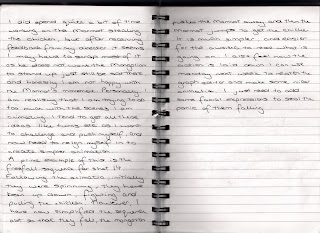 I did spend quite a bit of time
working on the Marmot stealing
the chicken, but after receiving
feedback from my director it seems
I may have to scrap most of it
as he does not want the Mongolian
to stand up just yet be sad more
and honestly I am not happy with
the Marmot's movement. Personally I
am realising that I am trying to do
too much with the scenes I am
animating. I tend to get all these
ideas, like twins etc as I want
to challenge and push myself, and
now need to reign myself in to
create simpler animation.
A prime example of this is the
freefall sequence for shot 17.
Following the animatic, initially
they were spinning, they have
been up down, fighting, and
pulling the chicken. However, I
have now simplified the sequence
alot so that they fall, the mongolian
pushes the Marmot away and then the
Marmot jumps to get the chicken
It is much simpler and easier
for the audience to read what is
going on. I also feel now the
action is to a decent stage.
Monday next week I'll neaten the
graph editor and make some nice
animation. I just need to add
some facial expressions to steal the
panic of them falling.